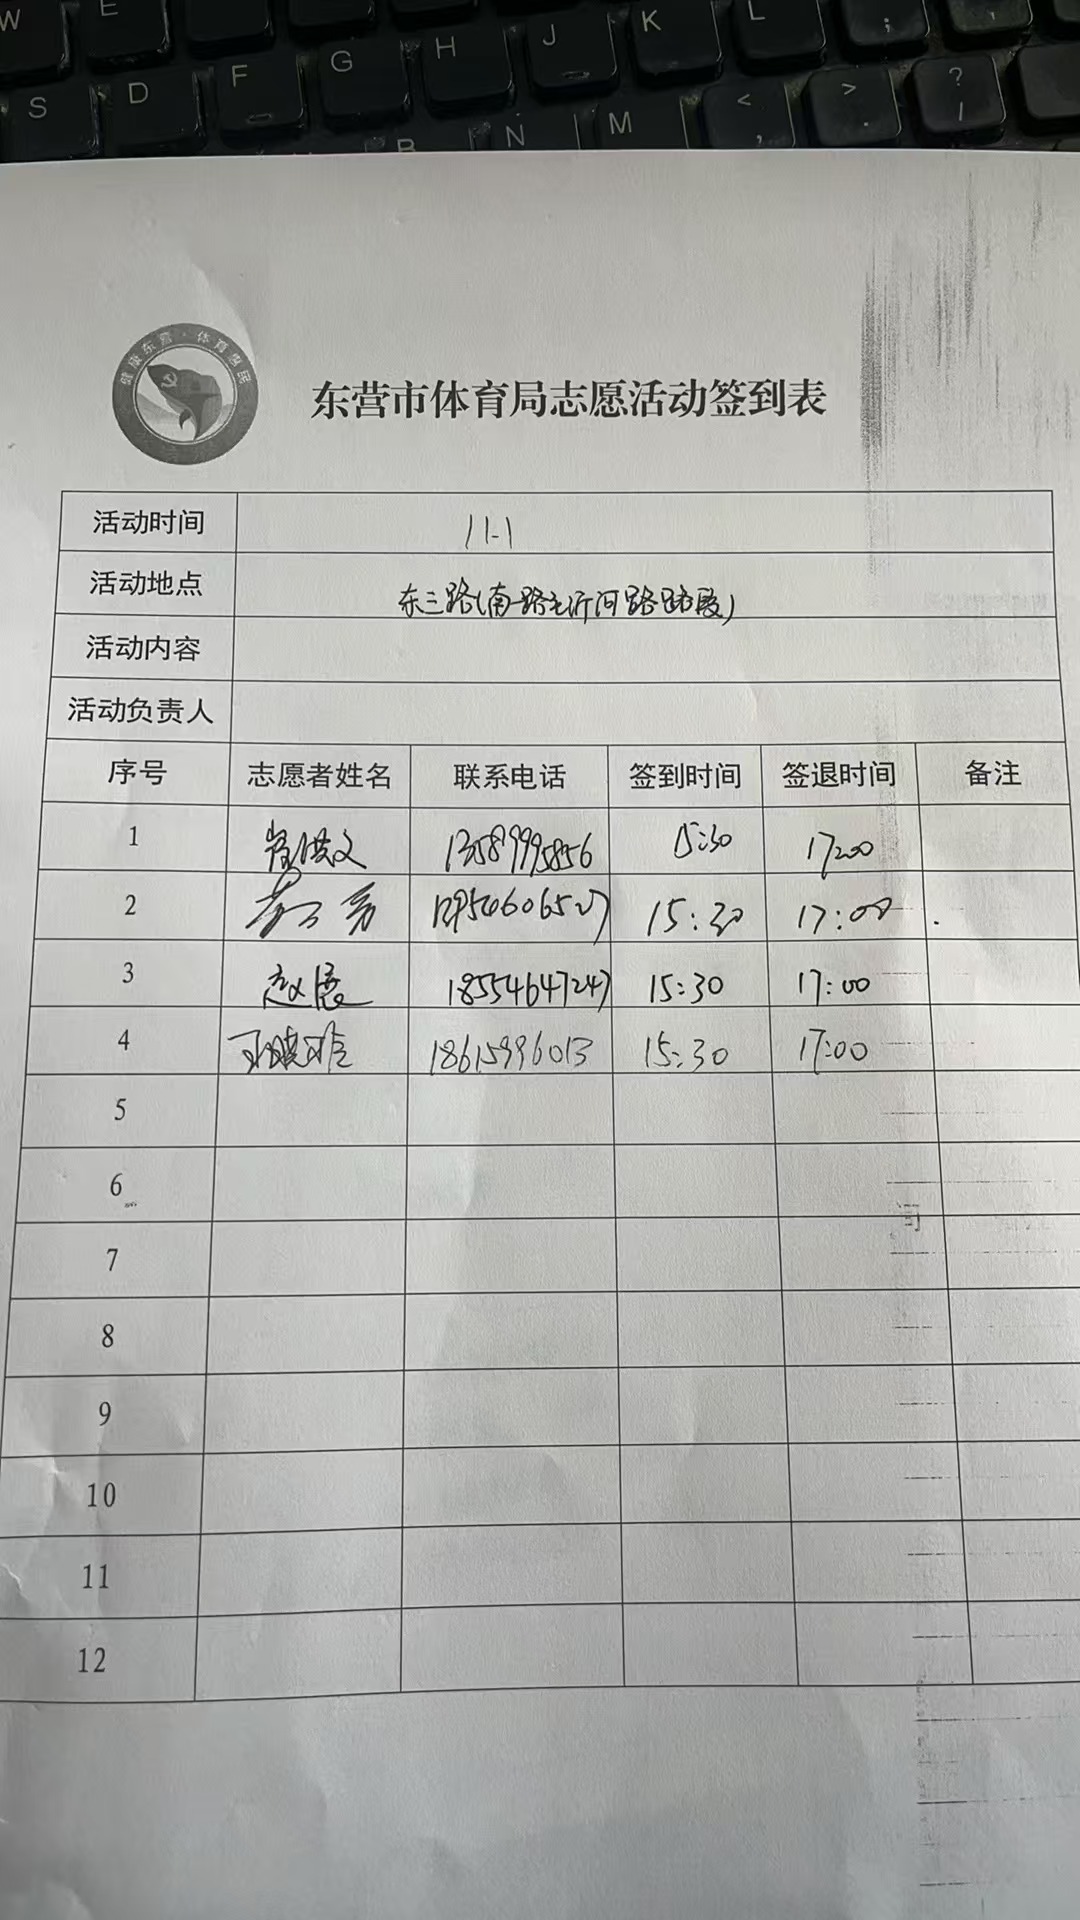 W E K L ;
S D F G H J < , > . ? /
B N M
健康东营·体育惠民
东营市体育局志愿活动签到表
活动时间 11-1
活动地点 东三路(南一路至沂河路路段)
活动内容
活动负责人
序号 志愿者姓名 联系电话 签到时间 签退时间 备注
1 13589995856 15:30 17:00
2 15:30 17:00
3 赵展 18554647247 15:30 17:00
4 18615996013 15:30 17:00
5
6
7
8
9
10
11
12